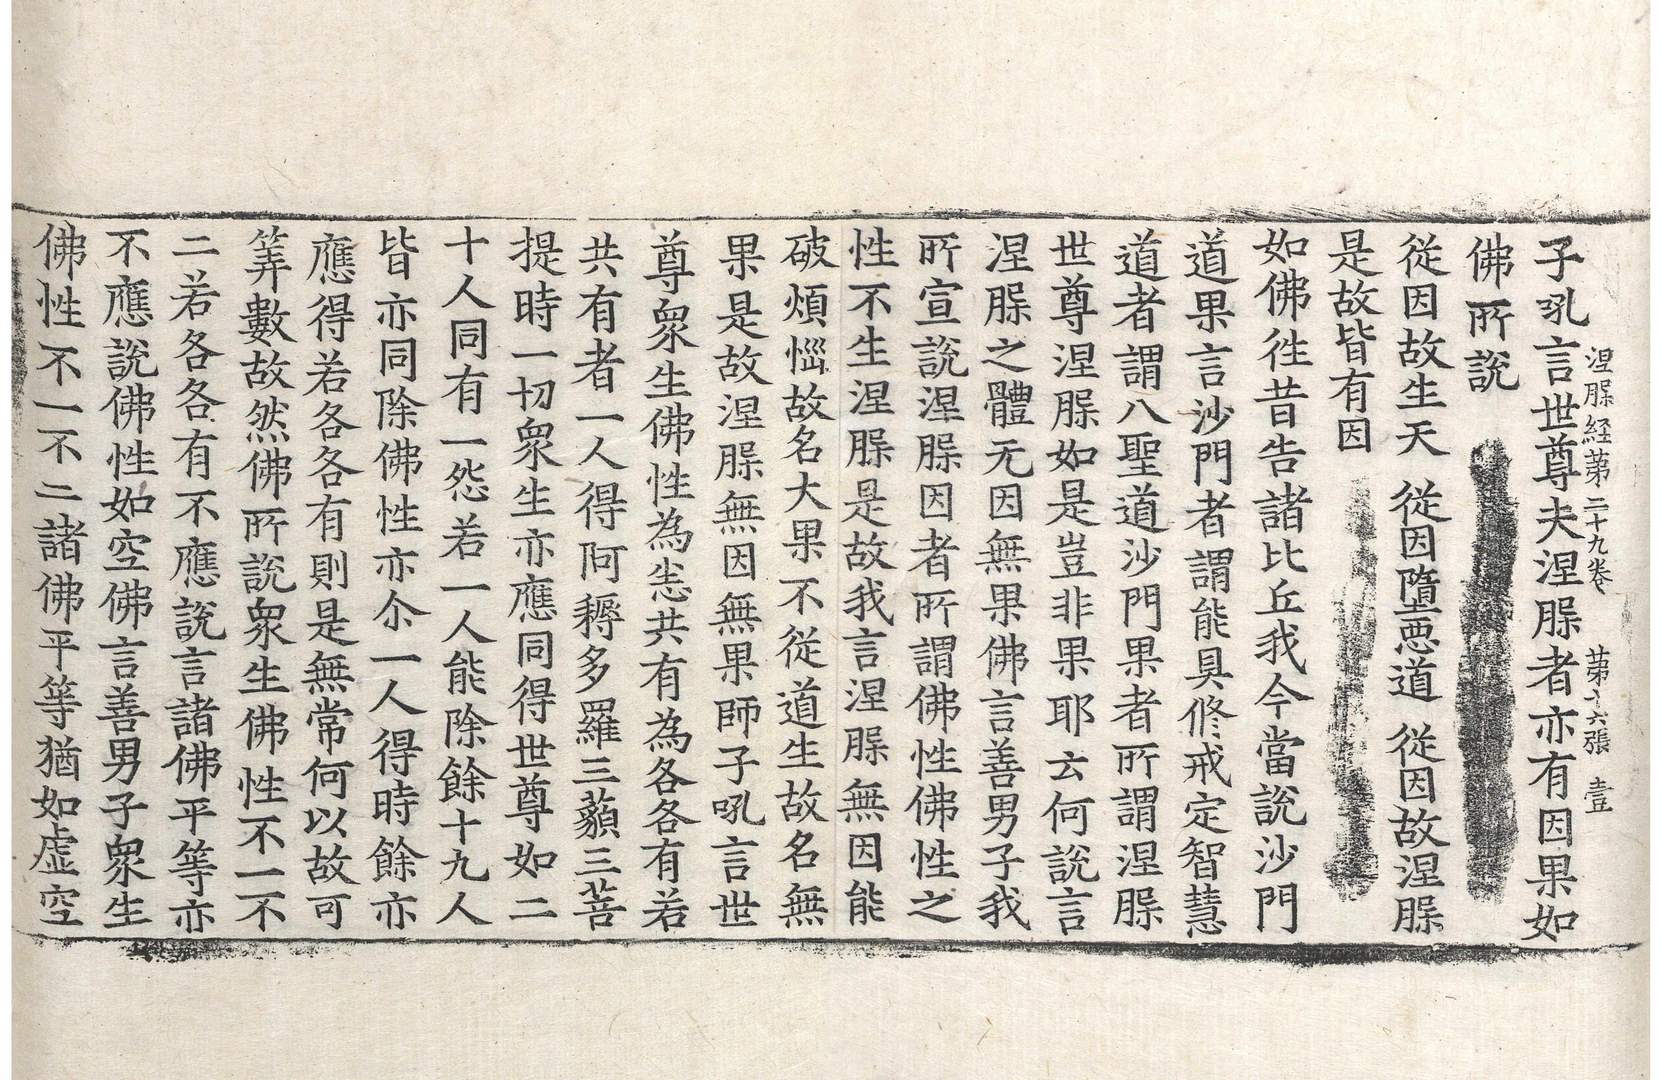 涅槃経第二十九卷 第十六張 壹
子吼言世尊夫涅槃者亦有因果如
佛所說
從因故生天 從因墮悪道 從因故涅槃
是故皆有因
如佛徃昔告諸比丘我今當說沙門
道果言沙門者謂能具修戒定智慧
道者謂八聖道沙門果者所謂涅槃
世尊涅槃如是豈非果耶云何說言
涅槃之體无因無果佛言善男子我
所宣說涅槃因者所謂佛性佛性之
性不生涅槃是故我言涅槃無因能
破煩惱故名大果不從道生故名無
果是故涅槃無因無果師子吼言世
尊衆生佛性為悉共有為各各有若
共有者一人得阿耨多羅三藐三菩
提時一切衆生亦應同得世尊如二
十人同有一怨若一人能除餘十九人
皆亦同除佛性亦尒一人得時餘亦
應得若各各有則是無常何以故可
筭數故然佛所說衆生佛性不一不
二若各各有不應說言諸佛平等亦
不應說佛性如空佛言善男子衆生
佛性不一不二諸佛平等猶如虛空